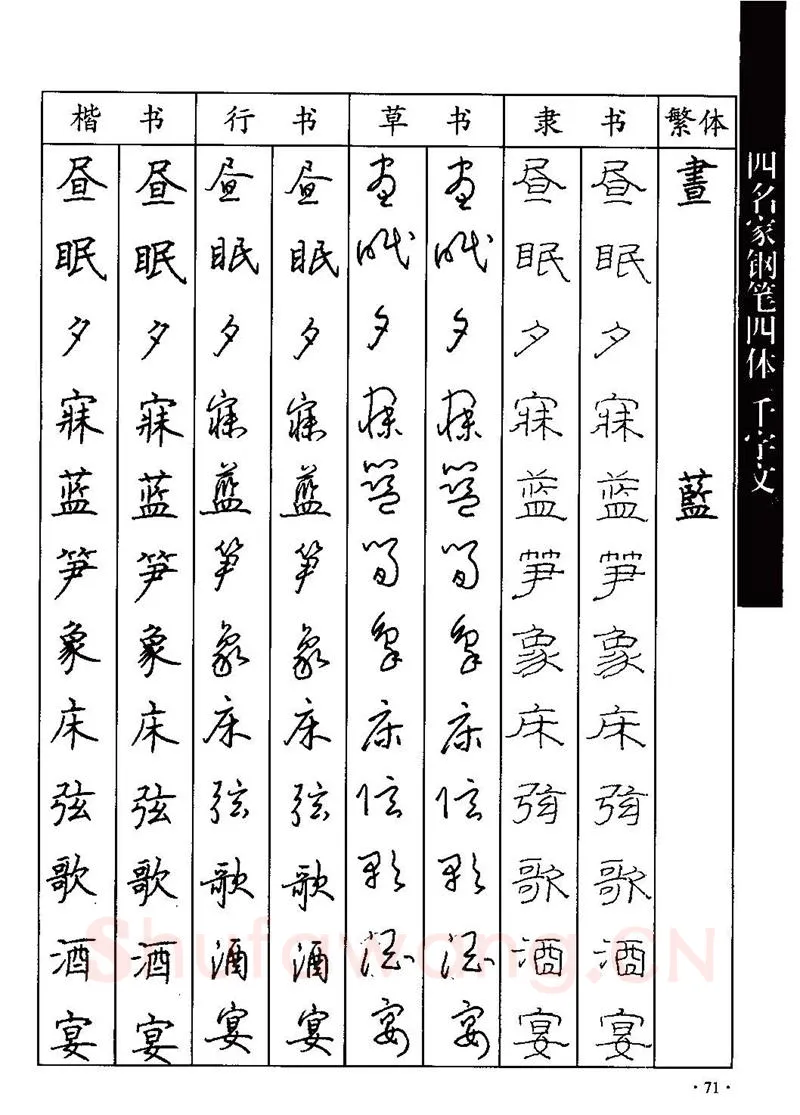 楷书 行书 草书 隶书 繁体
昼眠夕寐蓝笋象床弦歌酒宴
昼眠夕寐蓝笋象床弦歌酒宴
昼眠夕寐蓝笋象床弦歌酒宴
昼眠夕寐蓝笋象床弦歌酒宴
昼眠夕寐蓝筍象床弦歌酒宴
昼眠夕寐蓝筍象床弦歌酒宴
昼眠夕寐蓝笋象床弦歌酒宴
昼眠夕寐蓝笋象床弦歌酒宴
晝 藍
四名家钢笔四体 千字文
Shufawang.CN
·71·